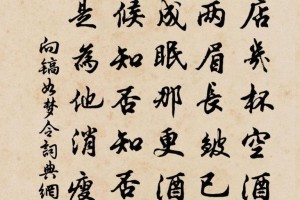 店幾杯空酒
两眉長皺已
成眠那更酒
候知否知否
是為他消瘦
向镐如梦令詞典網